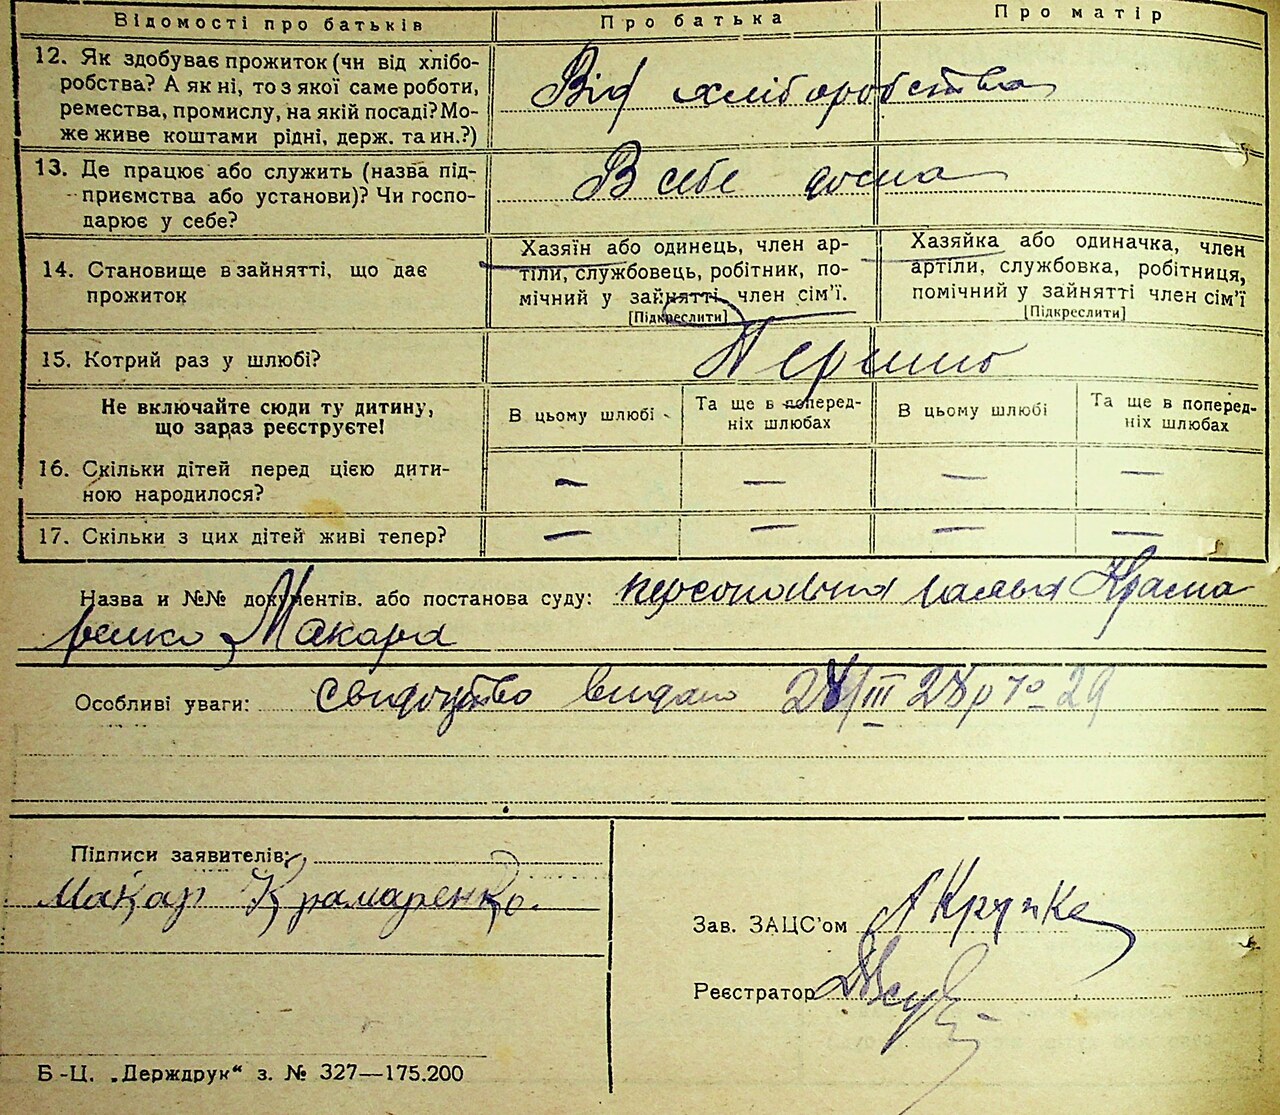 Відомості про батьків Про батька Про матір
12. Як здобуває прожиток (чи від хлібо-
робства? А як ні, то з якої саме роботи,
ремества, промислу, на якій посаді? Мо-
же живе коштами рідні, держ. та ин.?)
Від хліборобства
13. Де працює або служить (назва під-
приємства або установи)? Чи госпо-
дарює у себе?
В себе дома
14. Становище в зайнятті, що дає
прожиток
Хазяїн або одинець, член ар-
тіли, службовець, робітник, по-
мічний у зайнятті член сім'ї.
[Підкреслити]
Хазяйка або одиначка, член
артіли, службовка, робітниця,
помічний у зайнятті член сім'ї
[Підкреслити]
15. Котрий раз у шлюбі?
Перший
Не включайте сюди ту дитину,
що зараз реєструєте!
В цьому шлюбі
Та ще в поперед-
ніх шлюбах
В цьому шлюбі
Та ще в поперед-
ніх шлюбах
16. Скільки дітей перед цією дити-
ною народилося?
— — — —
17. Скільки з цих дітей живі тепер?
— — — —
Назва и №№ документів. або постанова суду: персональна Крама
ренко Макара
Особливі уваги: свидоцтво видано 28/III 28р № 29
Підписи заявителів:
Макар Крамаренко.
Зав. ЗАЦС'ом А Крупка
Реєстратор
Б-Ц. „Держдрук“ з. № 327—175.200